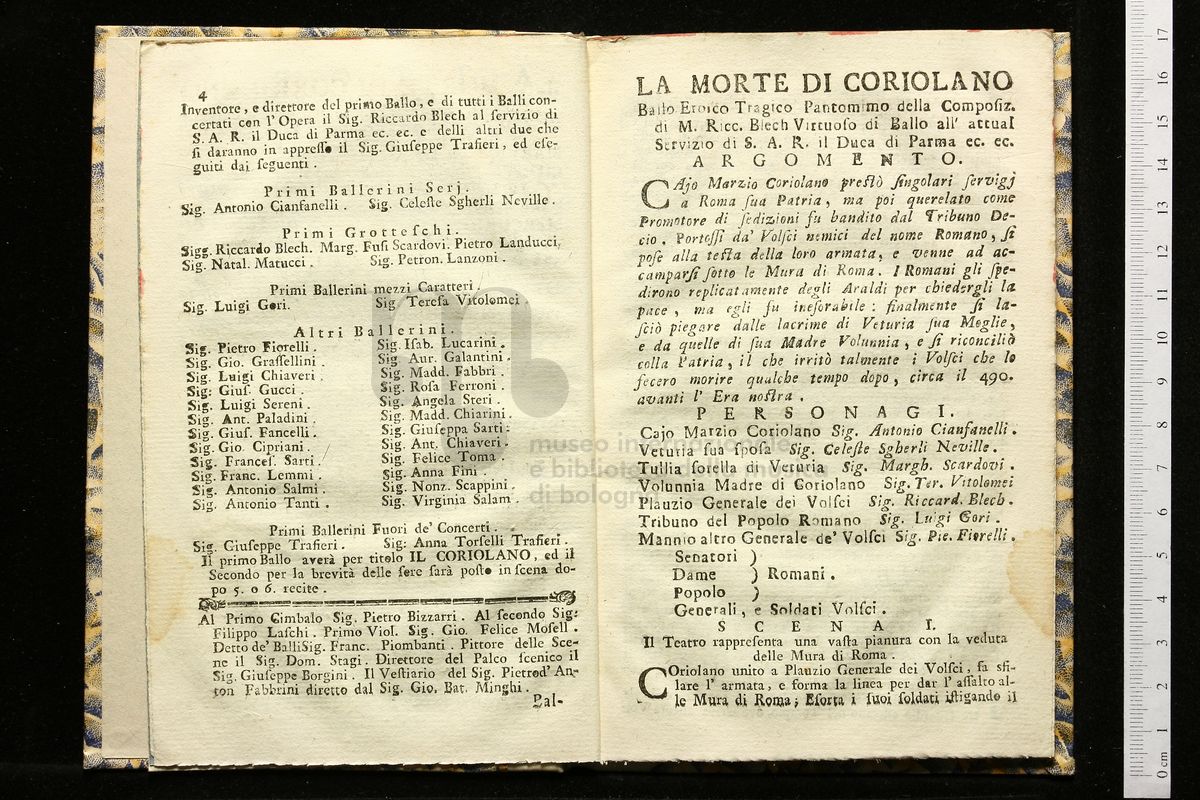 4
Inventore, e direttore del primo Ballo, e di tutti i Balli con-
certati con l' Opera il Sig. Riccardo Blech al servizio di
S. A. R. il Duca di Parma ec. ec. e delli altri due che
si daranno in appresso il Sig. Giuseppe Trafieri, ed ese-
guiti dai seguenti.
Primi Ballerini Serj.
Sig. Antonio Cianfanelli. Sig. Celeste Sgherli Neville.
Primi Grotteschi.
Sigg. Riccardo Blech. Marg. Fusi Scardovi. Pietro Landucci,
Sig. Natal. Matucci. Sig. Petron. Lanzoni.
Primi Ballerini mezzi Caratteri.
Sig. Luigi Gori. Sig Teresa Vitolomei
Altri Ballerini.
Sig. Pietro Fiorelli. Sig. Isab. Lucarini.
Sig. Gio. Grassellini Sig. Aur. Galantini.
Sig. Luigi Chiaveri. Sig. Madd. Fabbri.
Sig. Gius. Gucci. Sig. Rosa Ferroni.
Sig. Luigi Sereni. Sig. Angela Steri.
Sig. Ant. Paladini. Sig. Madd. Chiarini.
Sig. Gius. Fancelli. Sig. Giuseppa Sarti:
Sig. Gio. Cipriani. Sig. Ant. Chiaveri.
Sig. Frances. Sarti. Sig. Felice Toma.
Sig. Franc. Lemmi. Sig. Anna Fini.
Sig. Antonio Salmi. Sig. Nonz. Scappini.
Sig. Antonio Tanti. Sig. Virginia Salam.
Primi Ballerini Fuori de' Concerti.
Sig. Giuseppe Trafieri. Sig: Anna Torselli Trafieri.
Il primo Ballo averà per titolo IL CORIOLANO, ed il
Secondo per la brevità delle sere sarà posto in scena do-
po 5. o 6. recite.
Al Primo Cimbalo Sig. Pietro Bizzarri. Al secondo Sig:
Filippo Laschi. Primo Viol. Sig. Gio. Felice Mosell.
Detto de' BalliSig. Franc. Piombanti. Pittore delle Sce-
ne il Sig. Dom. Stagi. Direttore del Palco scenico il
Sig. Giuseppe Borgini. Il Vestiario del Sig. Pietrod' An-
ton Fabbrini diretto dal Sig. Gio. Bat. Minghi.
Bal-
LA MORTE DI CORIOLANO
Ballo Eroico Tragico Pantomimo della Composiz.
di M. Ricc. Blech Virtuoso di Ballo all' attual
Servizio di S. A. R. il Duca di Parma ec. ec.
ARGOMENTO.
CAjo Marzio Coriolano prestò singolari servigj
a Roma sua Patria, ma poi querelato come
Promotore di sedizioni fu bandito dal Tribuno De-
cio. Portossi da' Volsci nemici del nome Romano, si
pose alla testa della loro armata, e venne ad ac-
camparsi sotto le Mura di Roma. I Romani gli spe-
dirono replicatamente degli Araldi per chiedergli la
pace, ma egli fu inesorabile: finalmente si la-
sciò piegare dalle lacrime di Veturia sua Moglie,
e da quelle di sua Madre Volunnia, e si riconciliò
colla Patria, il che irritò talmente i Volsci che lo
fecero morire qualche tempo dopo, circa il 490.
avanti l' Era nostra.
PERSONAGI.
Cajo Marzio Coriolano Sig. Antonio Cianfanelli.
Veturia sua sposa Sig. Celeste Sgherli Neville.
Tullia sorella di Veturia Sig. Margh. Scardovi.
Volunnia Madre di Coriolano Sig. Ter. Vitolomei
Plauzio Generale dei Volsci Sig. Riccard. Blech.
Tribuno del Popolo Romano Sig. Luigi Gori.
Mannio altro Generale de' Volsci Sig. Pie. Fiorelli.
Senatori )
Dame ) Romani.
Popolo )
Generali, e Soldati Volsci.
SCENA I.
Il Teatro rappresenta una vasta pianura con la veduta
delle Mura di Roma.
COriolano unito a Plauzio Generale dei Volsci, fa sfi-
lare l' armata, e forma la linea per dar l' assalto al-
le Mura di Roma; Esorta i suoi soldati istigando il
museo internazionale
e biblioteca della musica
di bologna
0 cm 1 2 3 4 5 6 7 8 9 10 11 12 13 14 15 16 17